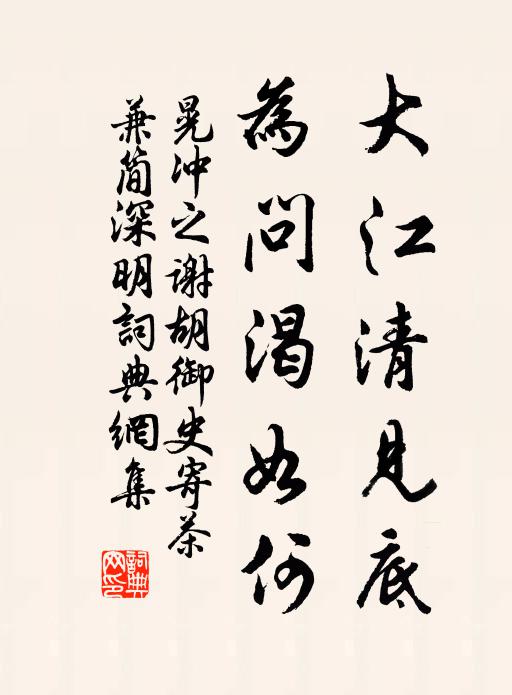 大江清見底
為問渴如何
晃沖之謝胡御史寄茶
兼簡深明詞典網集
詞典
网印